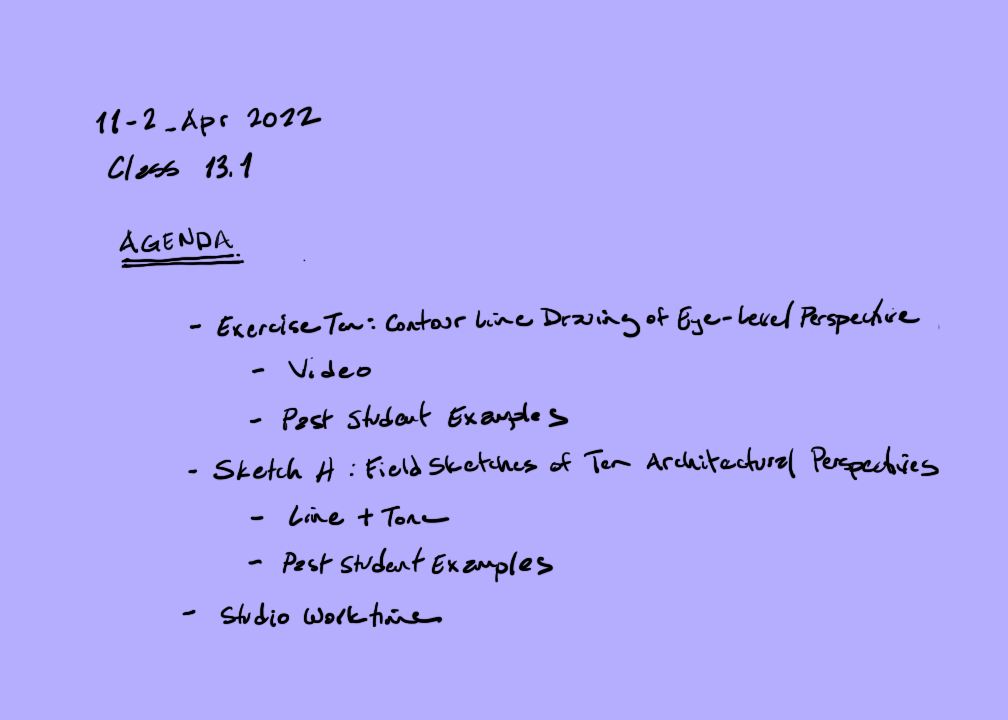 11-2_Apr 2022
Class 13.1
AGENDA
- Exercise Ten: Contour Line Drawing of Eye-Level Perspective
- Video
- Past Student Examples
- Sketch H: Field Sketches of Ten Architectural Perspectives
- Line + Tone
- Past Student Examples
- Studio Worktime